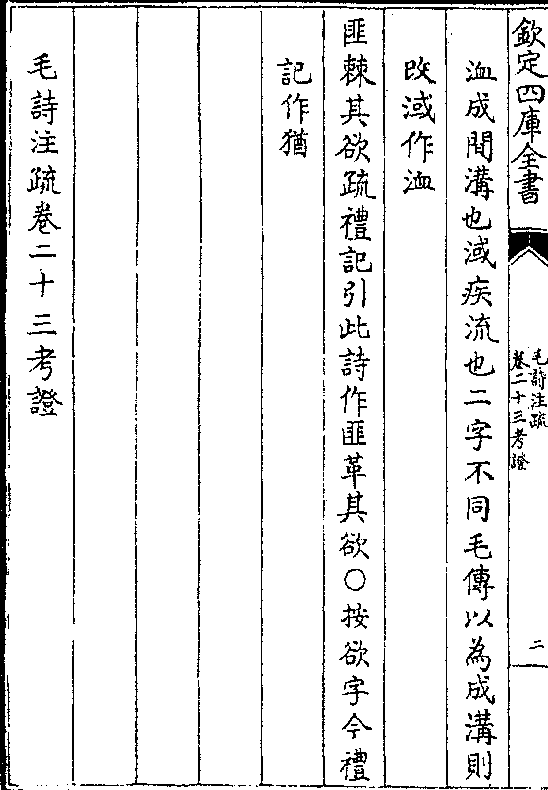 欽定四庫全書
毛詩注疏
卷二十三考證
二
洫成間溝也淢疾流也二字不同毛傳以為成溝則
改淢作洫
匪棘其欲疏禮記引此詩作匪革其欲○按欲字今禮
記作猶
毛詩注疏卷二十三考證